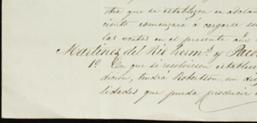 tra que se establezca en adelan
ciente comenzará á cargarse so
las ventas en el presente año
Martinez del Rio herm.s y
1º En que si resolvieren establec
dicion, tendrá Robertson un di
ledades que pueda producir